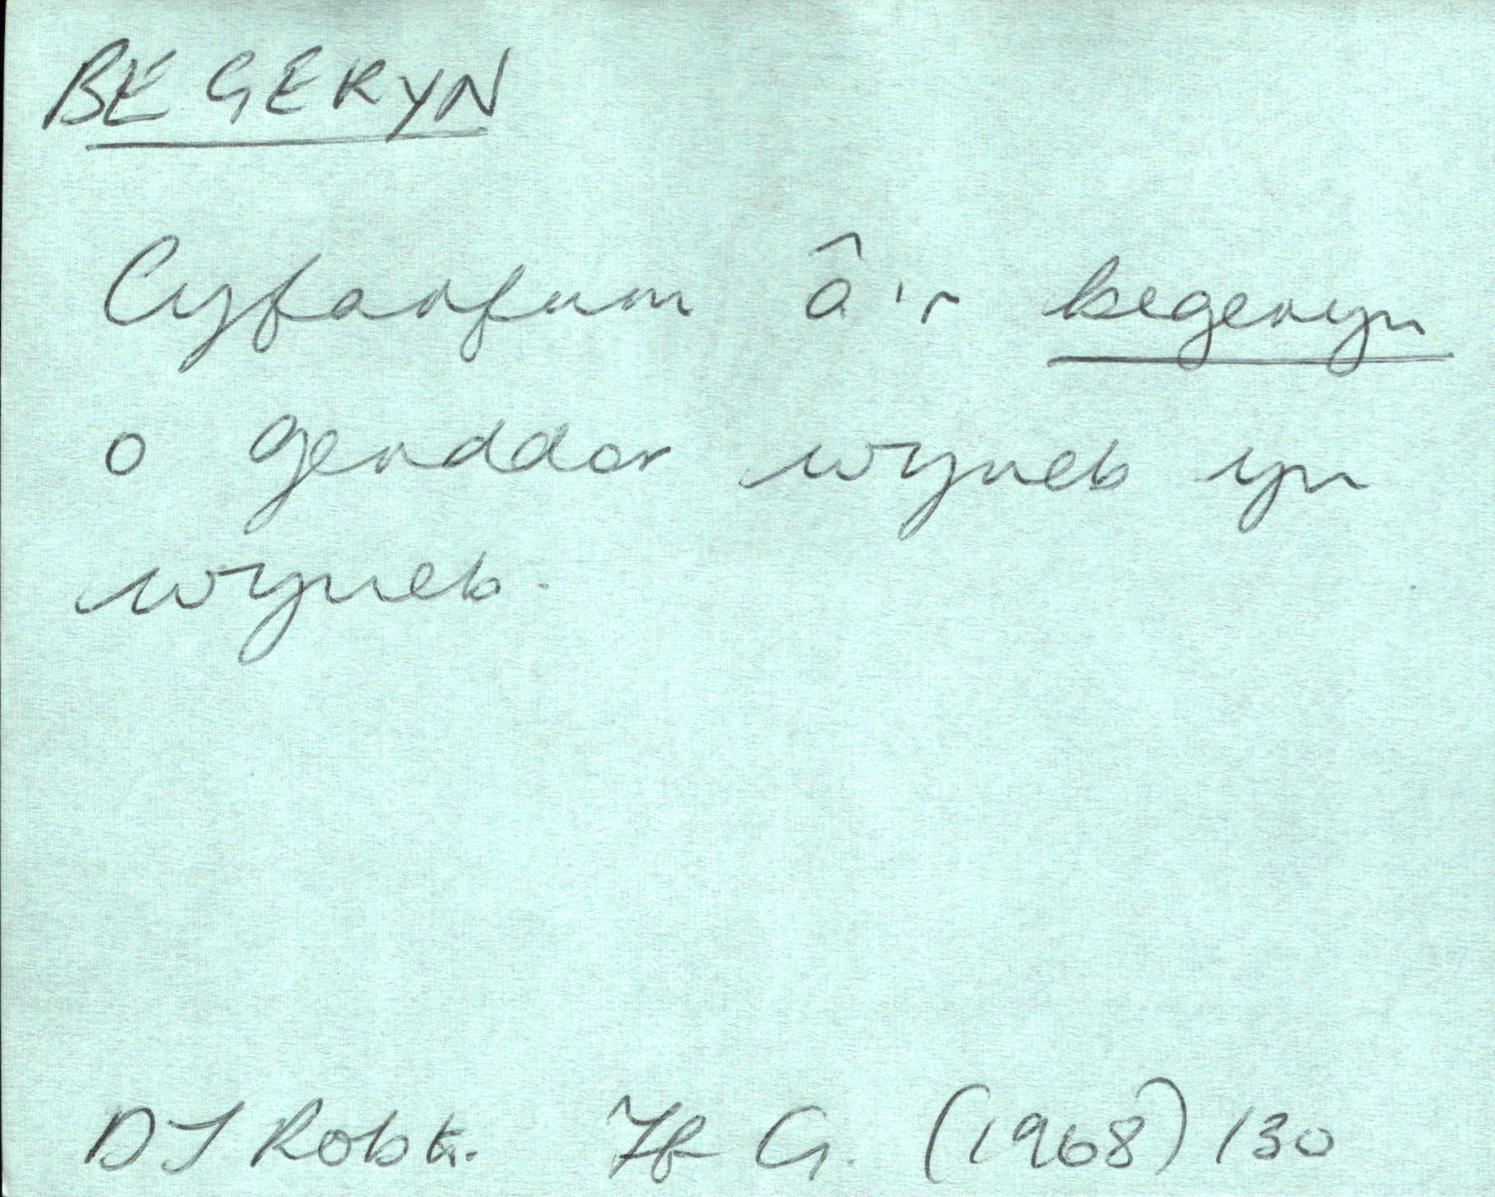 BEGERYN
Cyfarfum â'r begeryn
o gerddor wyneb yn
wyneb.
DJ Robts. G. (1968) 130